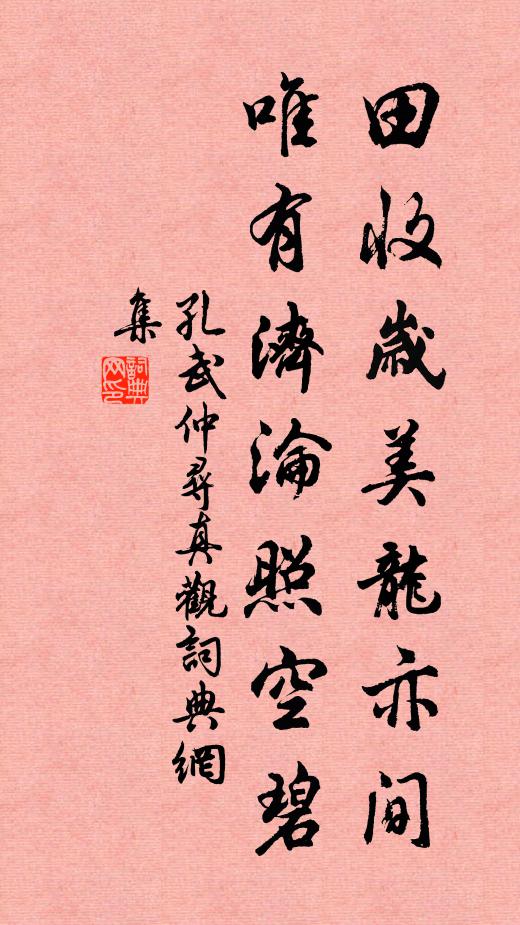 田收歲美龍亦間
唯有濟淪照空碧
孔武仲尋真觀詞典網
集
詞典
网印